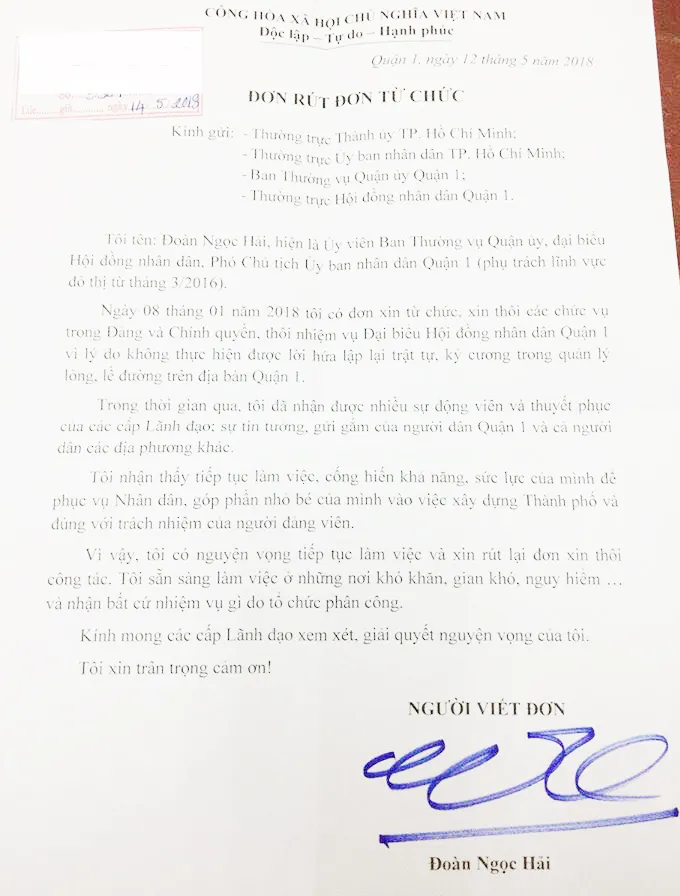 CỘNG HÒA XÃ HỘI CHỦ NGHĨA VIỆT NAM
Độc lập – Tự do – Hạnh phúc
ngày 14/5/2018
Quận 1, ngày 12 tháng 5 năm 2018
ĐƠN RÚT ĐƠN TỪ CHỨC
Kính gửi: - Thường trực Thành ủy TP. Hồ Chí Minh;
- Thường trực Ủy ban nhân dân TP. Hồ Chí Minh;
- Ban Thường vụ Quận ủy Quận 1;
- Thường trực Hội đồng nhân dân Quận 1.
Tôi tên: Đoàn Ngọc Hải, hiện là Ủy viên Ban Thường vụ Quận ủy, đại biểu
Hội đồng nhân dân, Phó Chủ tịch Ủy ban nhân dân Quận 1 (phụ trách lĩnh vực
đô thị từ tháng 3/2016).
Ngày 08 tháng 01 năm 2018 tôi có đơn xin từ chức, xin thôi các chức vụ
trong Đảng và Chính quyền, thôi nhiệm vụ Đại biểu Hội đồng nhân dân Quận 1
vì lý do không thực hiện được lời hứa lập lại trật tự, kỷ cương trong quản lý
lòng, lề đường trên địa bàn Quận 1.
Trong thời gian qua, tôi đã nhận được nhiều sự động viên và thuyết phục
của các cấp Lãnh đạo; sự tin tưởng, gửi gắm của người dân Quận 1 và cả người
dân các địa phương khác.
Tôi nhận thấy tiếp tục làm việc, cống hiến khả năng, sức lực của mình để
phục vụ Nhân dân, góp phần nhỏ bé của mình vào việc xây dựng Thành phố và
đúng với trách nhiệm của người đảng viên.
Vì vậy, tôi có nguyện vọng tiếp tục làm việc và xin rút lại đơn xin thôi
công tác. Tôi sẵn sàng làm việc ở những nơi khó khăn, gian khó, nguy hiểm …
và nhận bất cứ nhiệm vụ gì do tổ chức phân công.
Kính mong các cấp Lãnh đạo xem xét, giải quyết nguyện vọng của tôi.
Tôi xin trân trọng cảm ơn!
NGƯỜI VIẾT ĐƠN
Đoàn Ngọc Hải